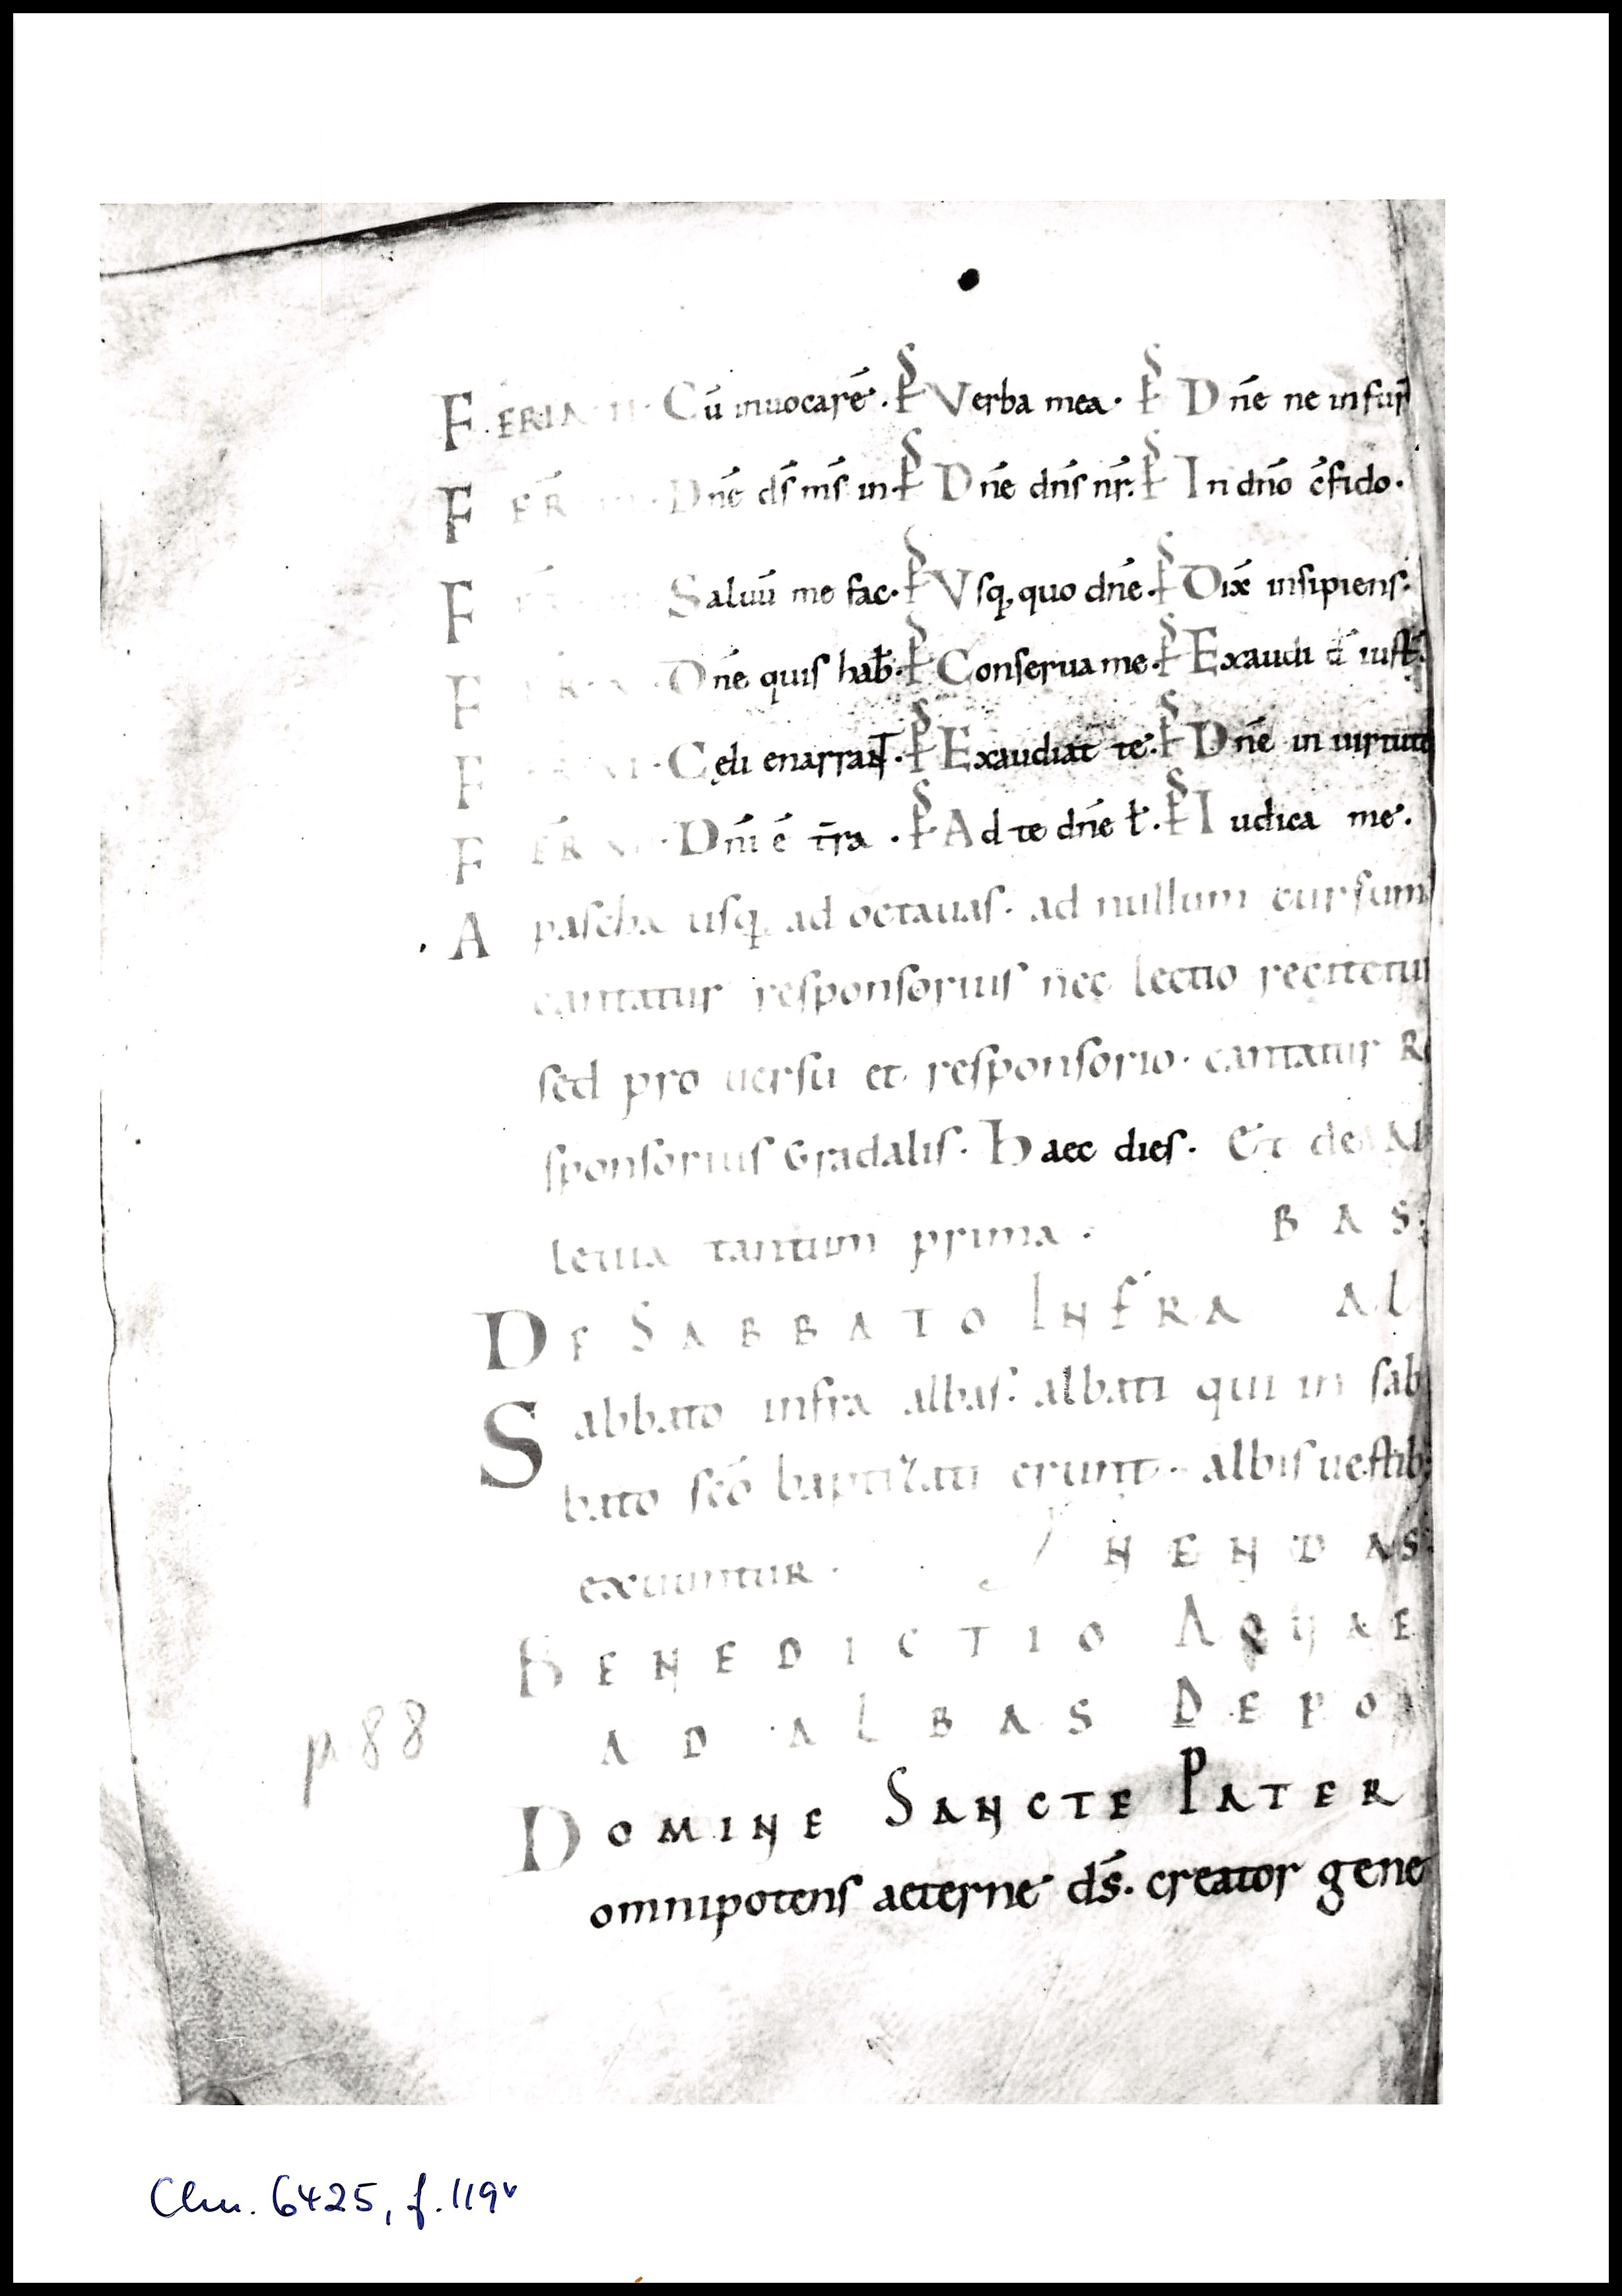 FERIA II. Cū inuocarē. P̸S Verba mea. P̸S Dn̄e ne in fur̄
FER̄ III. Dn̄e ds̄ ms̄ in. P̸S Dn̄e dn̄s nr̄. P̸S In dn̄o c̄fido.
F Saluū me fac. P̸S Vsq; quo dn̄e. P̸S Dix̄ insipiens.
FER̄ V. Dn̄e quis hab̄. P̸S Conserua me. P̸S Exaudi d̄ iust̄.
F VI. Celi enarrant. P̸S Exaudiat te. P̸S Dn̄e in uirtut
FER̄ Dn̄i ē tr̄a. P̸S Ad te dn̄e l̄. P̸S Iudica me.
A pascha usq; ad octauas. ad nullum cursum
cantatur responsorius nec lectio recitetur
sed pro uersu et responsorio. cantatur Re
sponsorius Gradalis. Haec dies. Et de Al
leluia tantum prima. BAS.
DE SABBATO INFRA AL
Sabbato infra albas. albati qui in sab
bato sc̄o baptizati erunt. albis uestib;
exuuntur. NENDAS.
BENEDICTIO AQUAE
AD ALBAS DEPO
DOMINE SANCTE PATER
omnipotens aeterne ds̄. creator gene
p 88
Clm. 6425, f. 119v